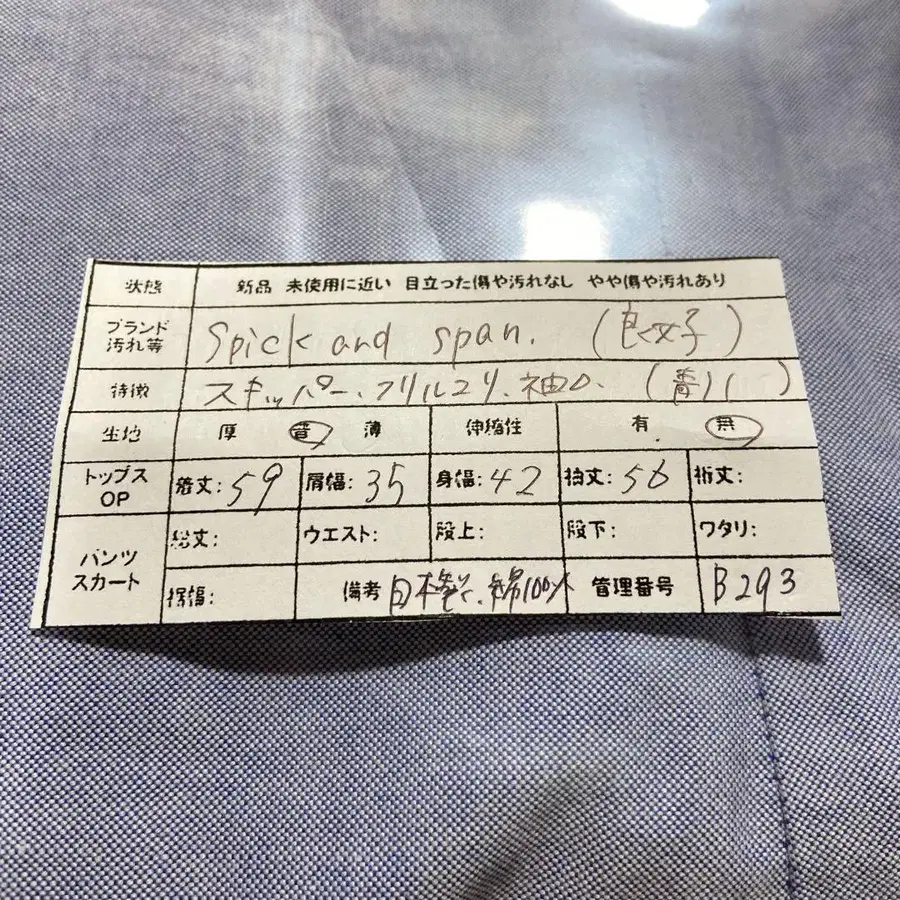 状態 新品 未使用に近い 目立った傷や汚れなし やや傷や汚れあり
ブランド 汚れ等 Spick and span. (良好)
特徴 スキッパー、フリルエリ、袖口、(青)
生地 厚 普 薄 伸縮性 有 無
トップス OP 着丈:59 肩幅:35 身幅:42 袖丈:56 裄丈:
パンツ スカート 総丈: ウエスト: 股上: 股下: ワタリ:
裾幅: 備考 日本製、綿100% 管理番号 B293